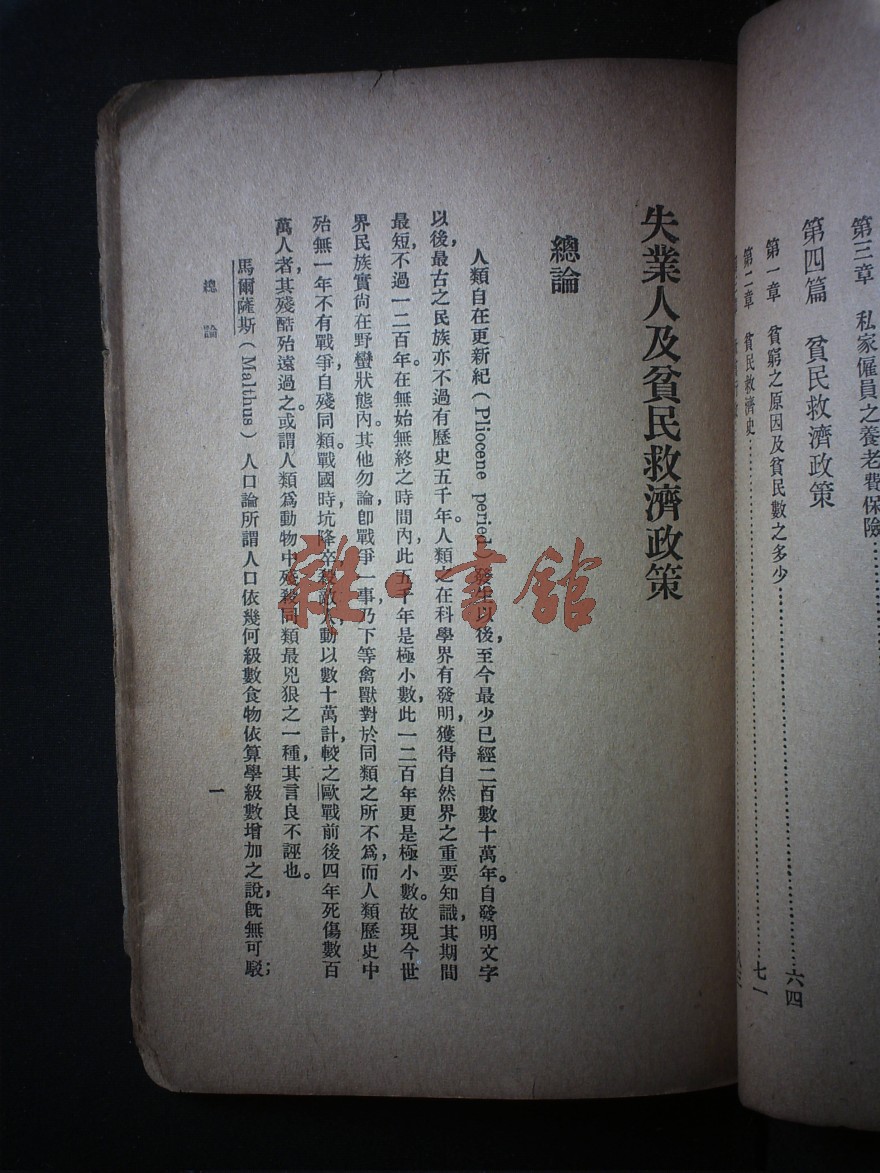 第三章　私家僱員之養老費保險……
第四篇　貧民救濟政策
第一章　貧窮之原因及貧民數之多少……六四
第二章　貧民救濟史……七一
失業人及貧民救濟政策
總論
人類自在更新紀（Pliocene period）發生以後，至今最少已經二百數十萬年。自發明文字
以後，最古之民族亦不過有歷史五千年。人類之在科學界有發明，獲得自然界之重要知識，其期間
最短，不過一二百年。在無始無終之時間內，此五千年是極小數，此一二百年更是極小數。故現今世
界民族實尙在野蠻狀態內。其他勿論，卽戰爭一事乃下等禽獸對於同類之所不爲，而人類歷史中
殆無一年不有戰爭，自殘同類。戰國時坑降卒，殺敵人，動以數十萬計，較之歐戰前後四年死傷數百
萬人者，其殘酷殆遠過之。或謂人類爲動物中殘殺同類最兇狠之一種，其言良不誣也。
馬爾薩斯（Malthus）人口論所謂人口依幾何級數食物依算學級數增加之說，旣無可駁；
總論
一
雜·書館